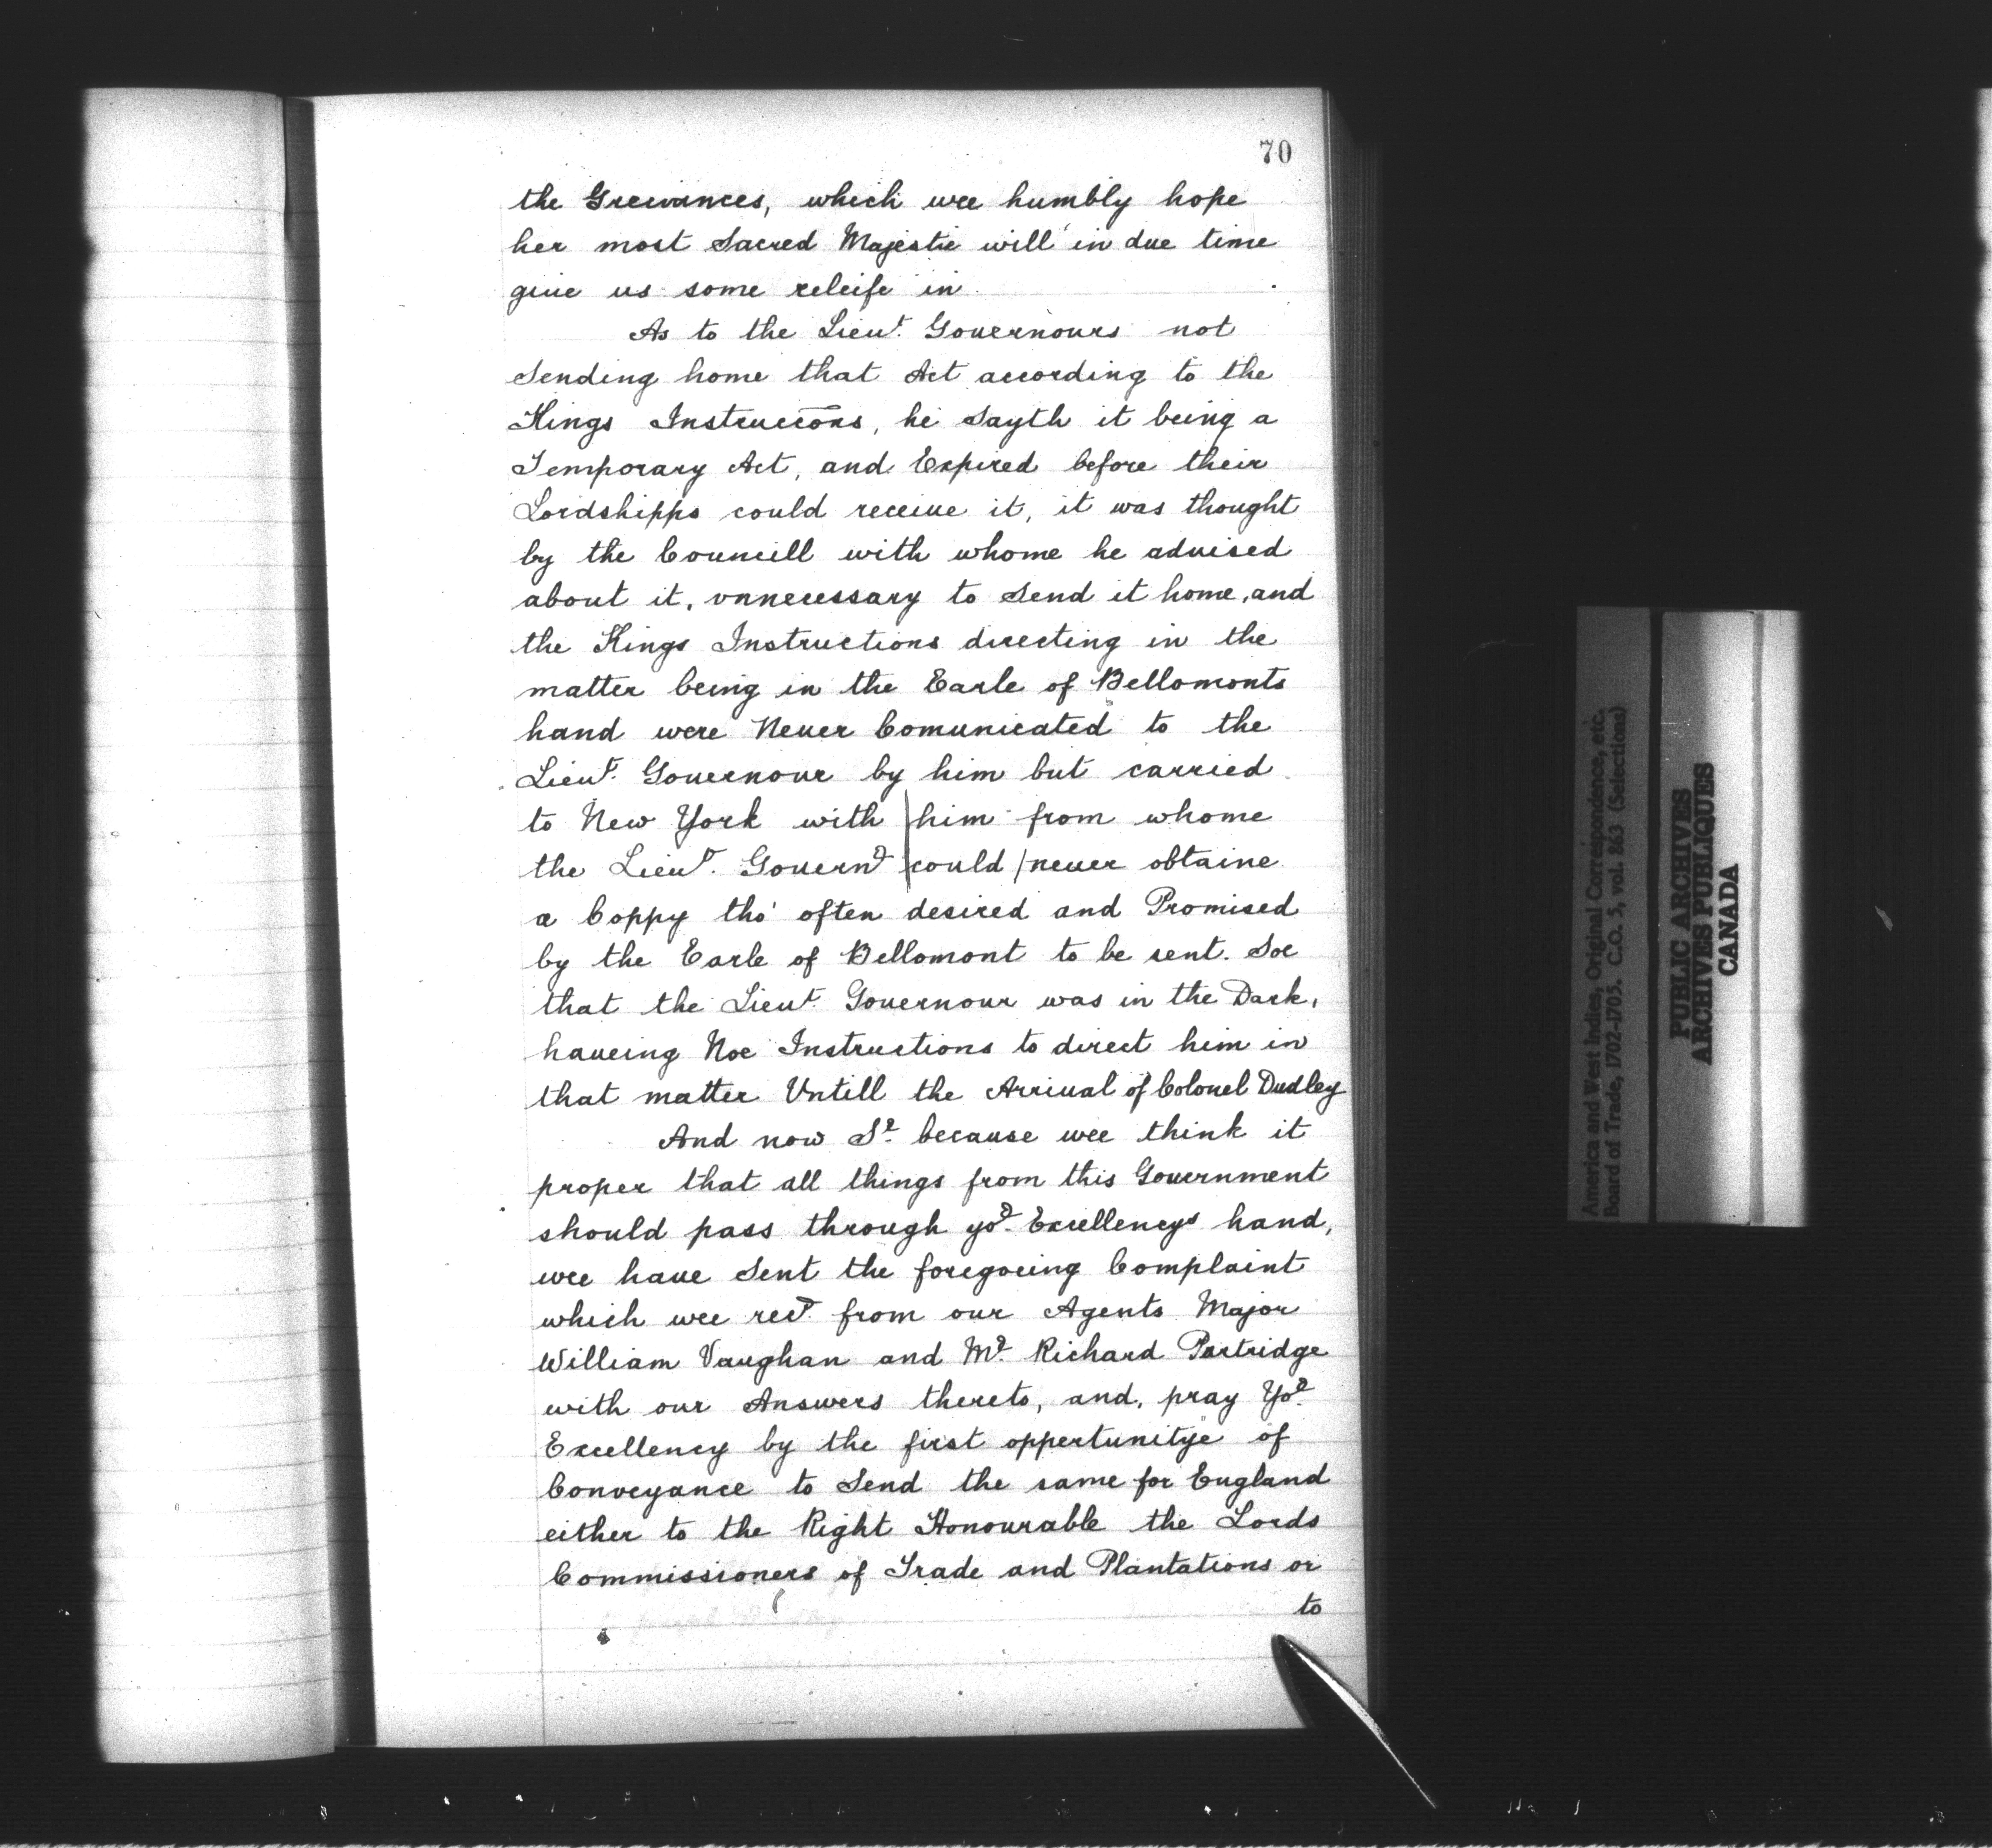 70
the Greivances, which wee humbly hope
her most Sacred Majestie will in due time
giue us some releife in
As to the Lieut. Gouernours not
Sending home that Act according to the
Kings Instruccons, he Sayth it being a
Temporary Act, and Expired before their
Lordshipps could receiue it, it was thought
by the Councill with whome he aduised
about it, vnnecessary to Send it home, and
the Kings Instructions directing in the
matter being in the Earle of Bellomonts
hand were Neuer Comunicated to the
Lieut. Gouernour by him but carried
to New York with him from whome
the Lieut. Governr could never obtaine
a Coppy tho' often desired and Promised
by the Earle of Bellomont to be sent. Soe
that the Lieut. Gouernour was in the Dark,
haueing Noe Instructions to direct him in
that matter Vntill the Arriual of Colonel Dudley
And now Sr. because wee think it
proper that all things from this Gouernment
should pass through yor. Excellencys hand,
wee haue Sent the foregoeing Complaint
which wee recd. from our Agents Major
William Vaughan and Mr. Richard Partridge
with our Answers thereto, and, pray Yor.
Excellency by the first oppertunitye of
Conveyance to Send the same for England
either to the Right Honourable the Lords
Commissioners of Trade and Plantations or
to
America and West Indies, Original Correspondence, etc.
Board of Trade, 1702-1703. C.O. 5, vol. 863 (Selections)
PUBLIC ARCHIVES
ARCHIVES PUBLIQUES
CANADA